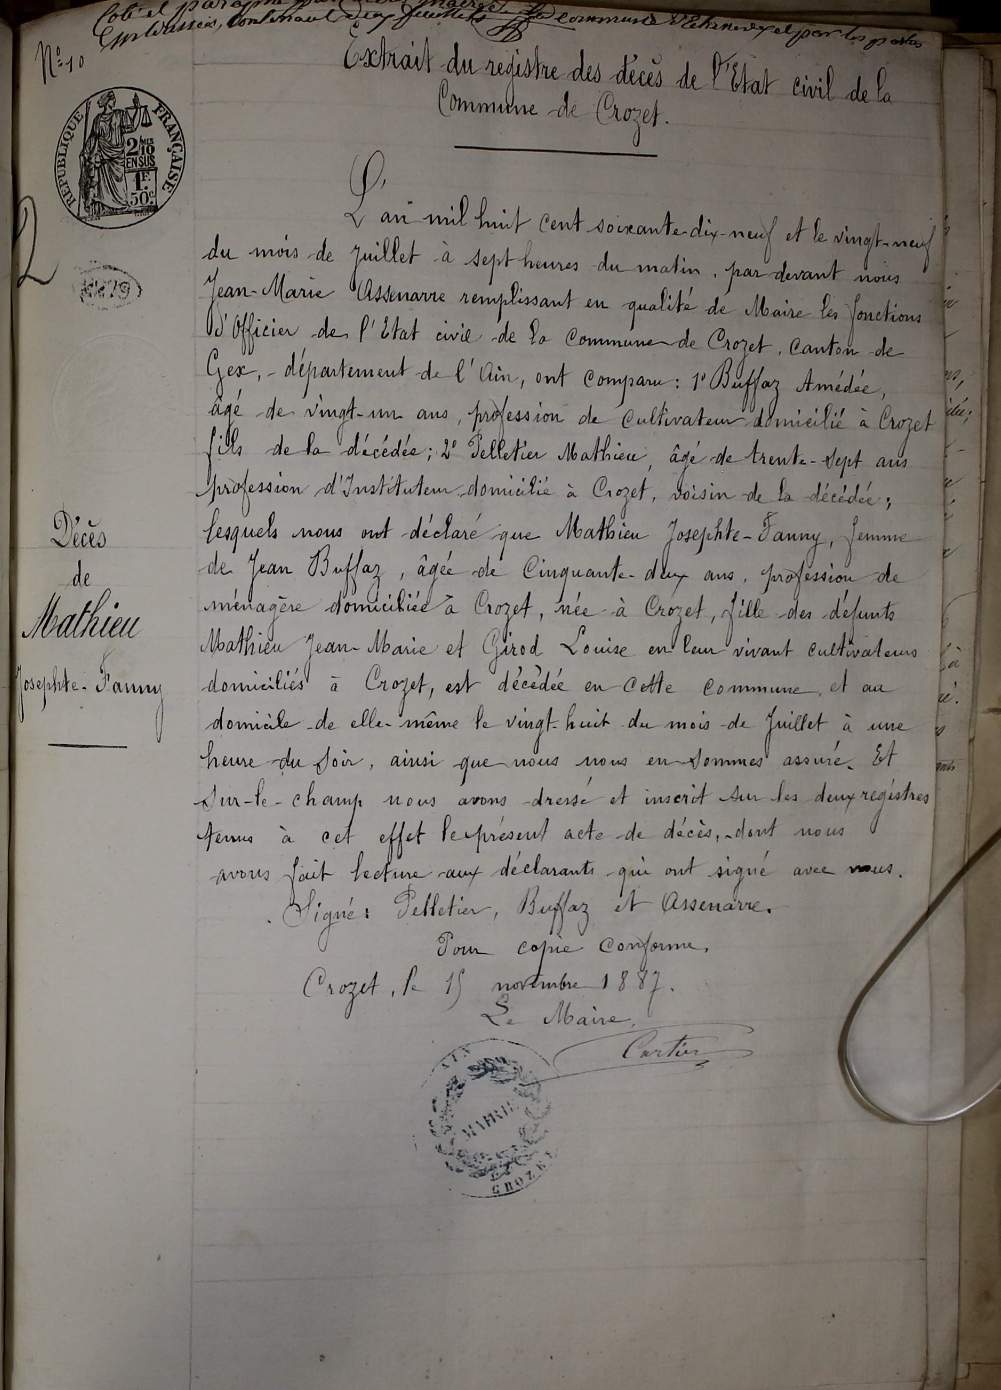 Coté et paraphé par
contenant deux feuillets commune d'Echenevex et par les postes
N° 10
Extrait du registre des décès de l'Etat civil de la
Commune de Crozet.
RÉPUBLIQUE FRANÇAISE
2/10 EN SUS
1F 50c
2
1879
L'an mil huit cent soixante-dix-neuf et le vingt-neuf
du mois de juillet à sept heures du matin, par devant nous
Jean-Marie Assenarre remplissant en qualité de Maire les fonctions
d'Officier de l'Etat civil de la commune de Crozet, canton de
Gex, département de l'Ain, ont comparu: 1° Buffaz Amédée,
âgé de vingt-un ans, profession de cultivateur domicilié à Crozet
fils de la décédée; 2° Pelletier Mathieu, âgé de trente-sept ans
profession d'Instituteur domicilié à Crozet, voisin de la décédée;
lesquels nous ont déclaré que Mathieu Josephte-Fanny, femme
de Jean Buffaz, âgée de Cinquante-deux ans, profession de
ménagère domiciliée à Crozet, née à Crozet, fille des défunts
Mathieu Jean-Marie et Girod Louise en leur vivant cultivateurs
domiciliés à Crozet, est décédée en cette commune et au
domicile de elle-même le vingt-huit du mois de Juillet à une
heure du soir, ainsi que nous nous en sommes assuré. Et
sur-le-champ nous avons dressé et inscrit sur les deux registres
tenus à cet effet le présent acte de décès, dont nous
avons fait lecture aux déclarants qui ont signé avec nous.
Signé: Pelletier, Buffaz et Assenarre.
Pour copie conforme,
Crozet, le 15 novembre 1887.
Le Maire,
Cartier
AIN
MAIRIE
CROZET
Décès
de
Mathieu
Josephte-Fanny